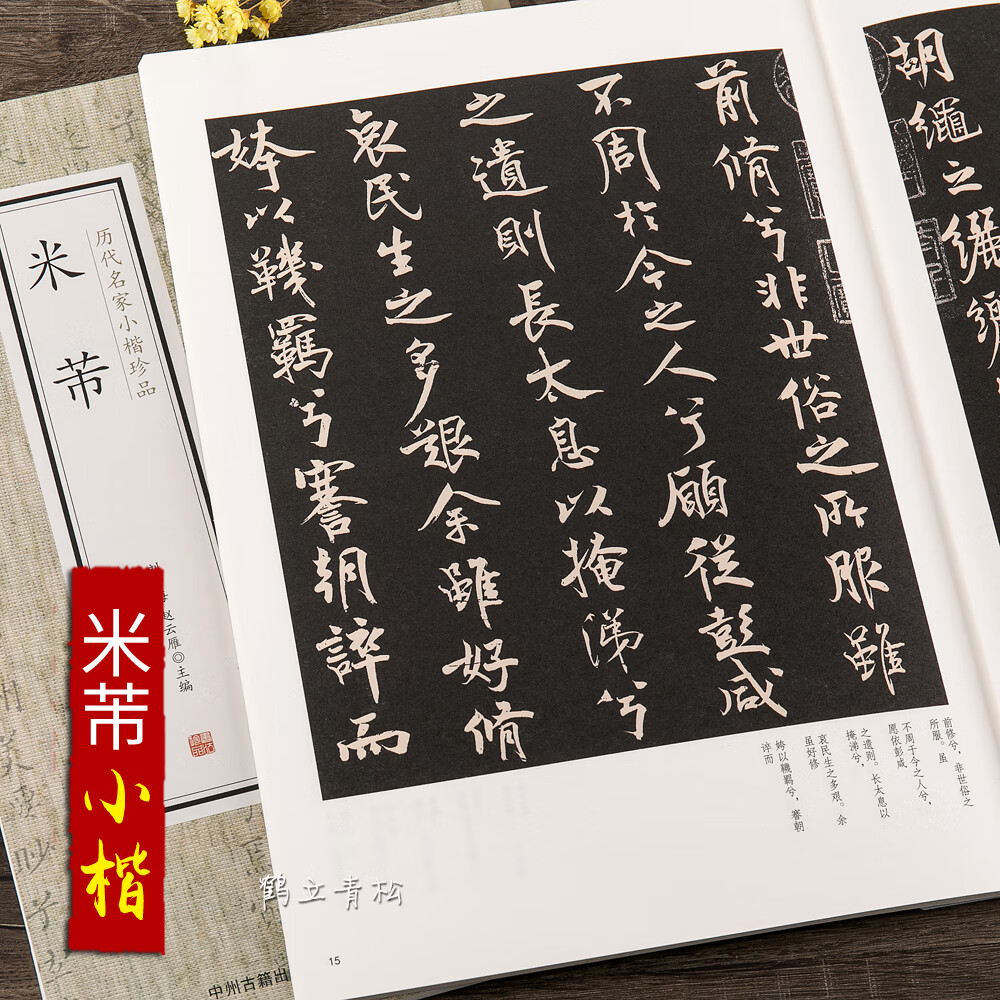 胡繩之纚纚
前脩兮非世俗之所服雖
不周於今之人兮願從彭咸
之遺則長太息以掩涕兮
哀民生之多艱余雖好脩
姱以鞿羈兮謇朝誶而
前修兮，非世俗之
所服。虽
不周于今之人兮，
愿依彭咸
之遗则。长太息以
掩涕兮，
哀民生之多艰。余
虽好修
姱以鞿羁兮，謇朝
谇而
15
历代名家小楷珍品
米芾
赵云雁◎主编
中州古籍出
米芾
小楷
鹤立青松